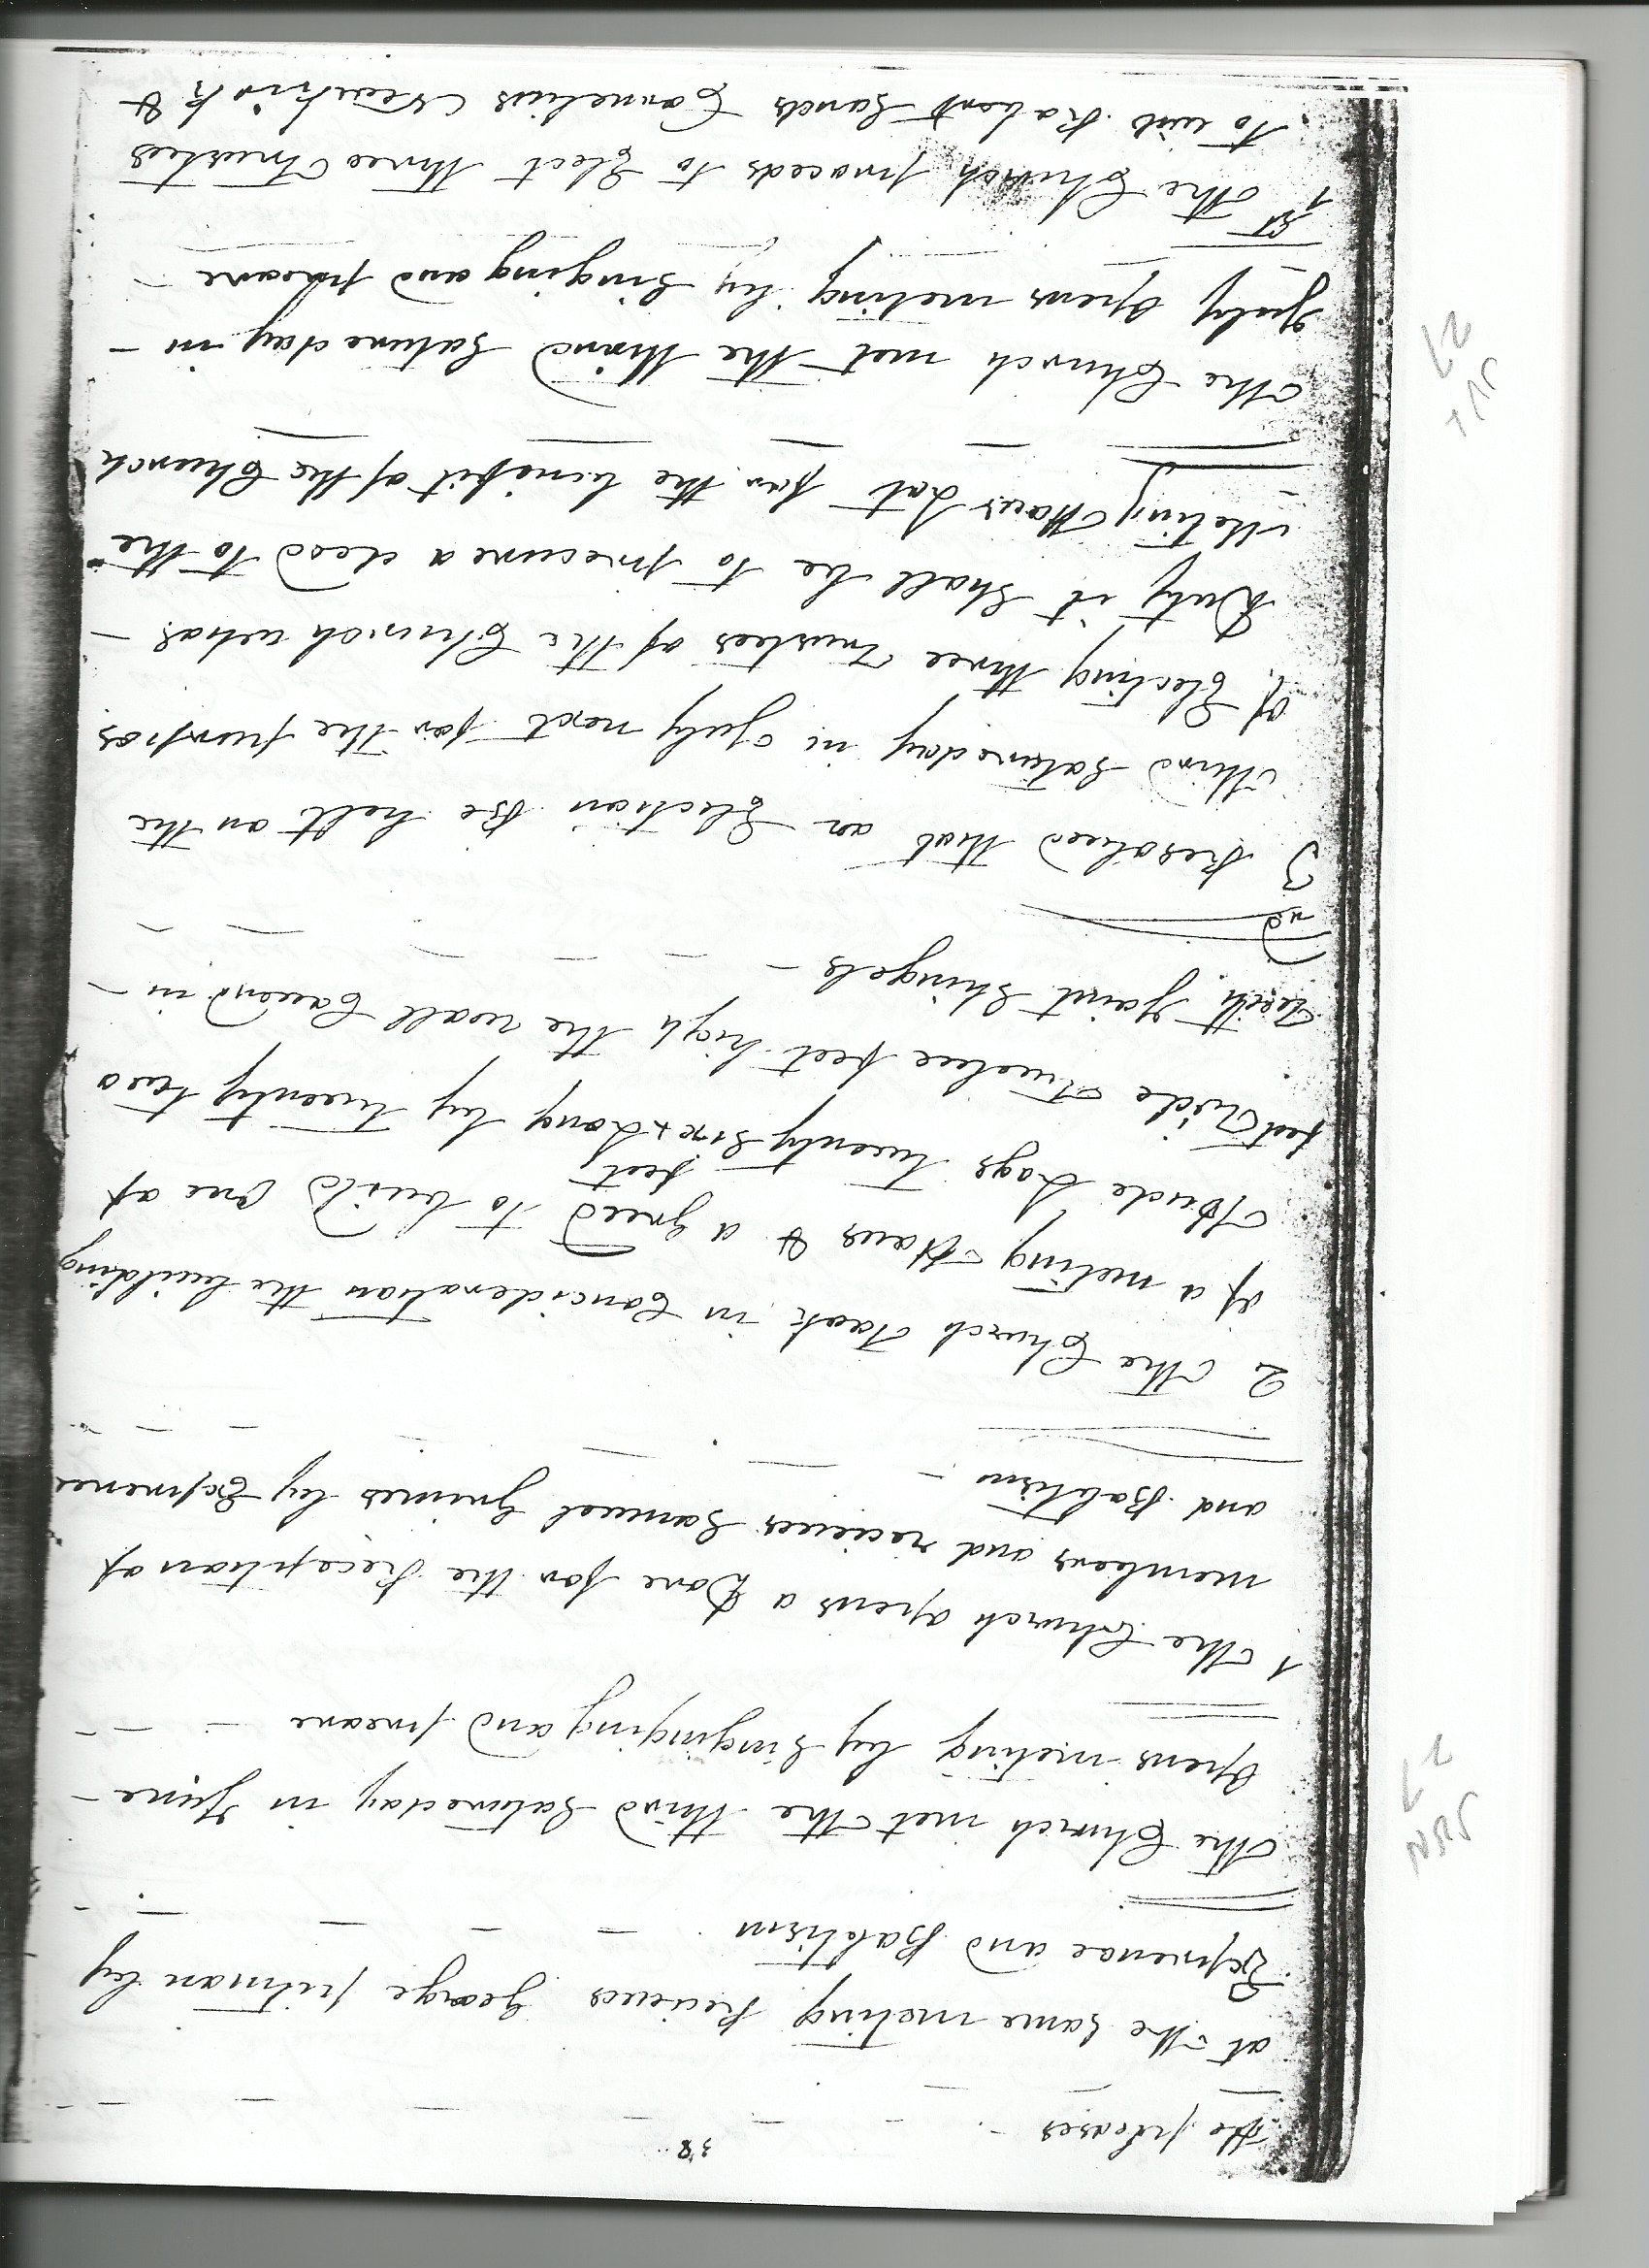 38
the pleases
at the same meting Recieves George pitman by
Expirence and Babtism
The Church met the third Satureday in June
JUN
27
Opens meting by Singing and preare
1 The Church opens a Dore for the Reception of
members and recieves Samuel Grimes by Expirence
and Babtism
2 The Church Taok in Concideration the building
of a meting Hous & a greed to build One of
feet
Hude Logs twenty Six x Long by twenty two
feet Wide Twelve feet high the wall Caverd in
With Joint Shingels
3 Resolved that an Election Be helt on the
rd
third Satureday in July next for the purpos
of Electing three Trustees of the Church whos
Duty it Shall be to precure a deed to the
Meting Hows Lot for the benifit of the Church
The Church met the third Satureday in
JULY
27
July Opens meting by Singing and preare
1st The Church proceds to Elect three Trustees
to wit Robert Sands Cornelius Newkirk &